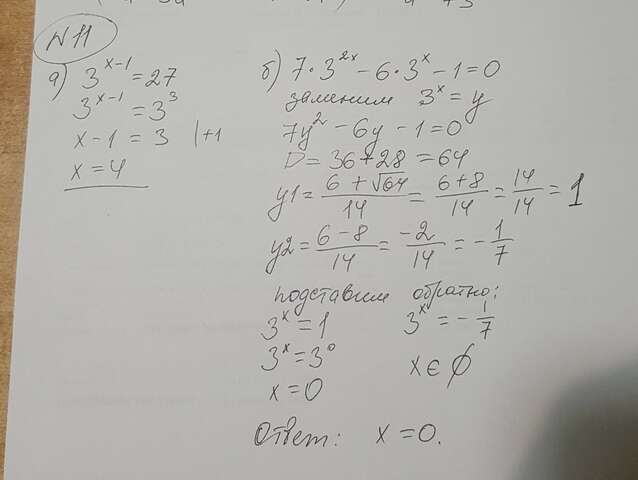 N 11
а) 3^(x-1) = 27
3^(x-1) = 3^3
x - 1 = 3 | +1
x = 4
б) 7 · 3^(2x) - 6 · 3^x - 1 = 0
заменим 3^x = y
7y^2 - 6y - 1 = 0
D = 36 + 28 = 64
y1 = (6 + √64)/14 = (6+8)/14 = 14/14 = 1
y2 = (6 - 8)/14 = -2/14 = -1/7
подставим обратно:
3^x = 1 3^x = -1/7
3^x = 3^0 x ∈ ∅
x = 0
Ответ: x = 0.